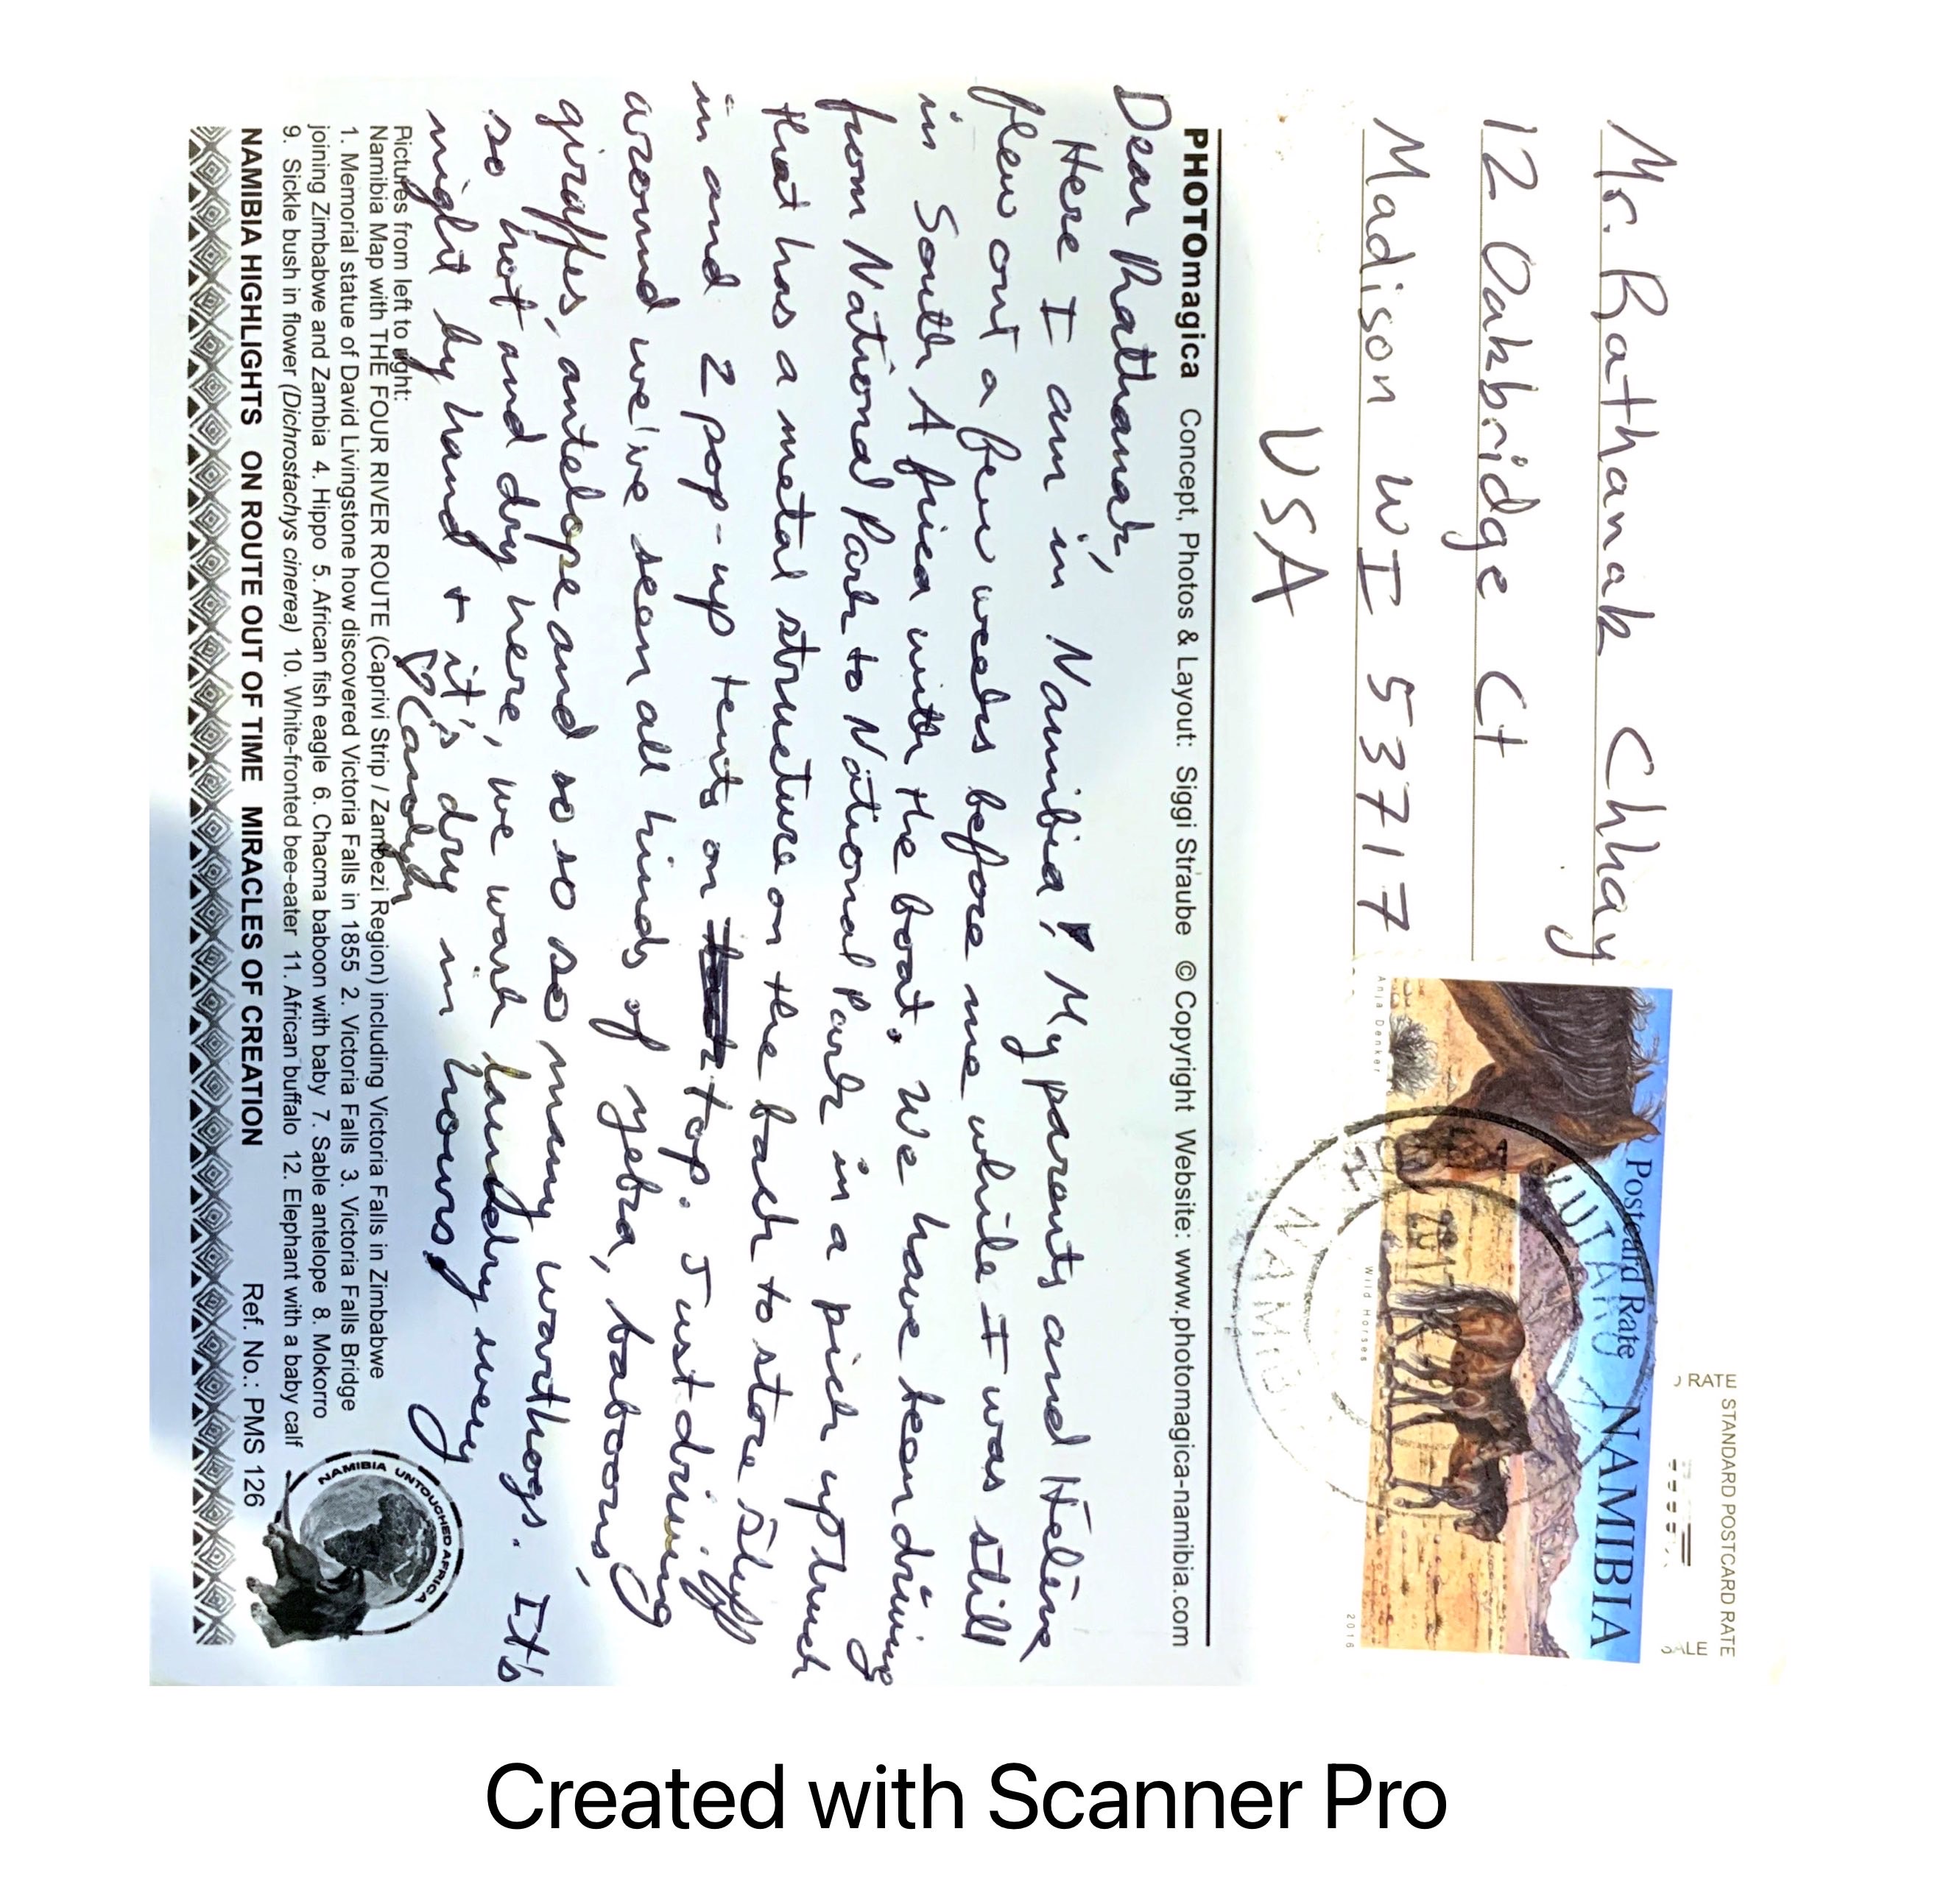 Mr. Rathanak Chhay
12 Oakbridge Ct
Madison WI 53717
USA
Postcard Rate NAMIBIA
Anja Denker
Wild Horses
2016
RATE STANDARD POSTCARD RATE
OUTAPI
NAMIBIA
PHOTOmagica Concept, Photos & Layout: Siggi Straube © Copyright Website: www.photomagica-namibia.com
Dear Rathanak,
Here I am in Namibia! My parents and Helene
flew out a few weeks before me while I was still
in South Africa with the boat. We have been driving
from National Park to National Park in a pick up truck
that has a metal structure on the back to store stuff
in and 2 pop-up tents on top. Just driving
around we've seen all kinds of zebra, baboons,
giraffes, antelope and so so so many warthogs. It's
so hot and dry here, we wash laundry every
night by hand + it's dry in hours!
♡ Candy
Pictures from left to right:
Namibia Map with THE FOUR RIVER ROUTE (Caprivi Strip / Zambezi Region) including Victoria Falls in Zimbabwe
1. Memorial statue of David Livingstone how discovered Victoria Falls in 1855 2. Victoria Falls 3. Victoria Falls Bridge
joining Zimbabwe and Zambia 4. Hippo 5. African fish eagle 6. Chacma baboon with baby 7. Sable antelope 8. Mokorro
9. Sickle bush in flower (Dichrostachys cinerea) 10. White-fronted bee-eater 11. African buffalo 12. Elephant with a baby calf
NAMIBIA HIGHLIGHTS ON ROUTE OUT OF TIME MIRACLES OF CREATION Ref. No.: PMS 126
NAMIBIA UNTOUCHED AFRICA
Created with Scanner Pro